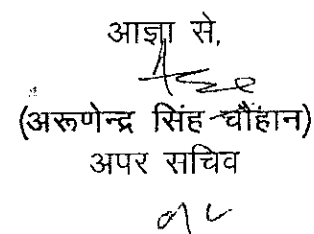 आज्ञा से,
(अरूणेन्द्र सिंह चौहान)
अपर सचिव